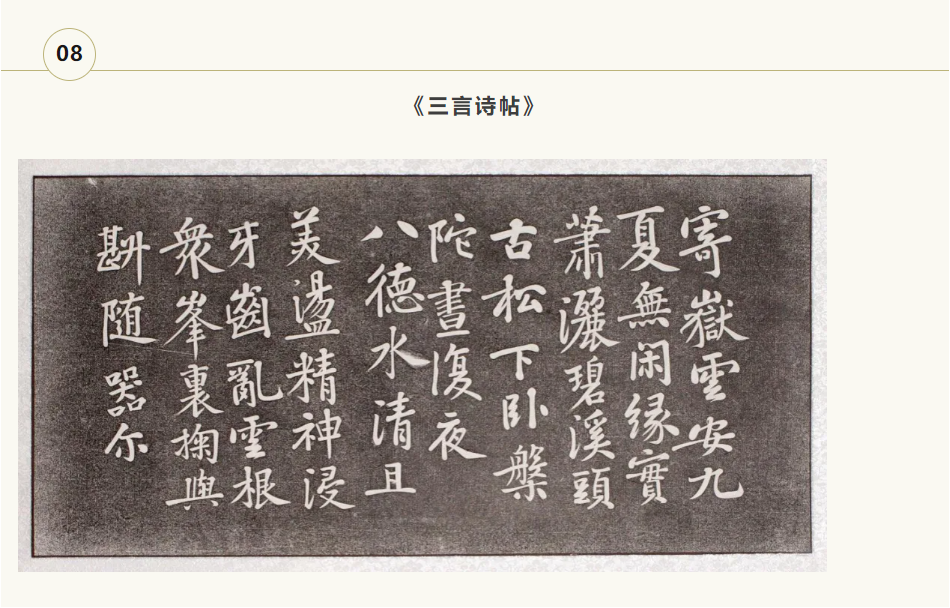 08
《三言诗帖》
寄嶽雲安九
夏無闲缘實
蕭灑碧溪頭
古松下卧槃
陀晝復夜
八德水清且
美盪精神浸
牙齒亂雲根
衆峯裏掬與
斟随器尔